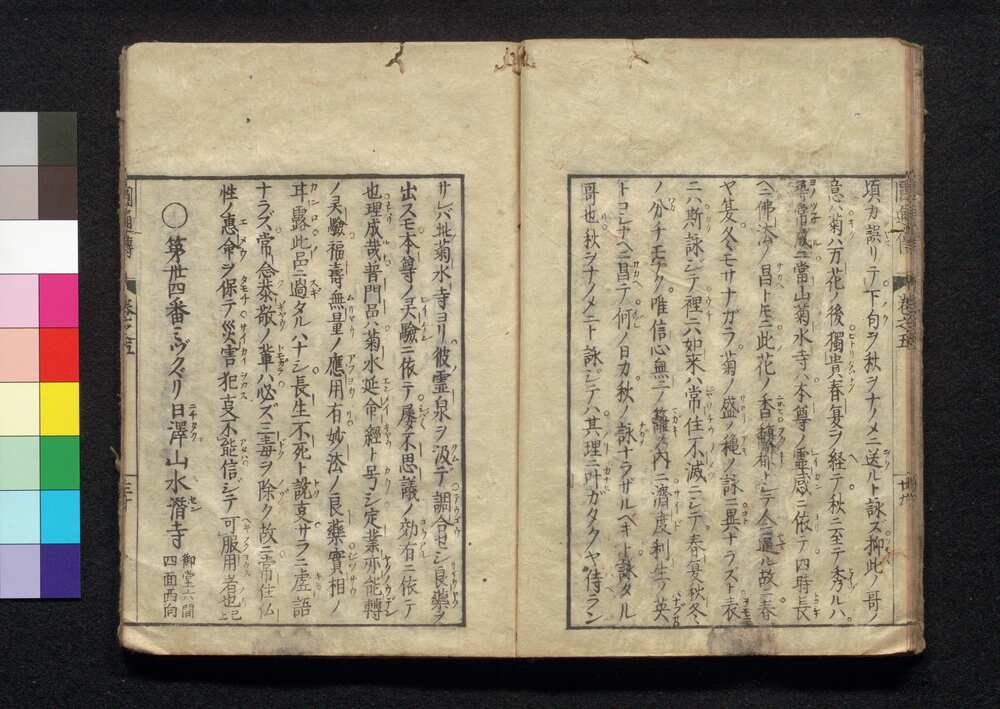 頃カ誤リテ下句ヲ秋ヲナノメニ送ルト詠ス抑此ノ哥ノ
意ハ菊ハ万花ノ後獨貴春夏ヲ経テ秋ニ至テ秀ルハ
尋常成ニ當山菊水寺ハ本尊ノ霊感ニ依テ四時長
ヘニ佛法ノ昌トモニ此花ノ香馥郁トシテ今温ル故ニ春
ヤ夏冬モサナガラ菊ノ盛ノ穐ノ詠ニ異ナラスト表
ニハ斯詠シテ裡ニハ如来ハ常住不滅ニシテ春夏秋冬
ノ分チモナク唯信心無二ノ籬ノ内ニ濟度利生ノ英
トコシナヘニ昌テ何ノ日カ秋ノ詠ナラザルベキト詠タル
哥也秋ヲナノメニト詠シテハ其理ニ叶ガタクヤ侍ラン
サレバ此菊水寺ヨリ彼霊泉ヲ汲デ調合セシ良藥ヲ
出スモ本尊ノ灵驗ニ依テ屡不思議ノ効有ニ依テ
也理成哉普門品ハ菊水延命經ト号シ定業亦能轉
ノ灵驗福壽無量ノ應用有妙法ノ良藥實相ノ
耳露此邑ニ過タルハナシ長生不死ト説亥サラニ虚語
ナラズ常念恭敬ノ輩ハ必ズ三毒ヲ除ク故ニ常住仏
性ノ惠命ヲ保テ災害犯亥不能信シテ可服用者也
○第卅四番ミヅクヾリ日澤山水潜寺
御堂六間
四面西向
圓通傳
巻之五